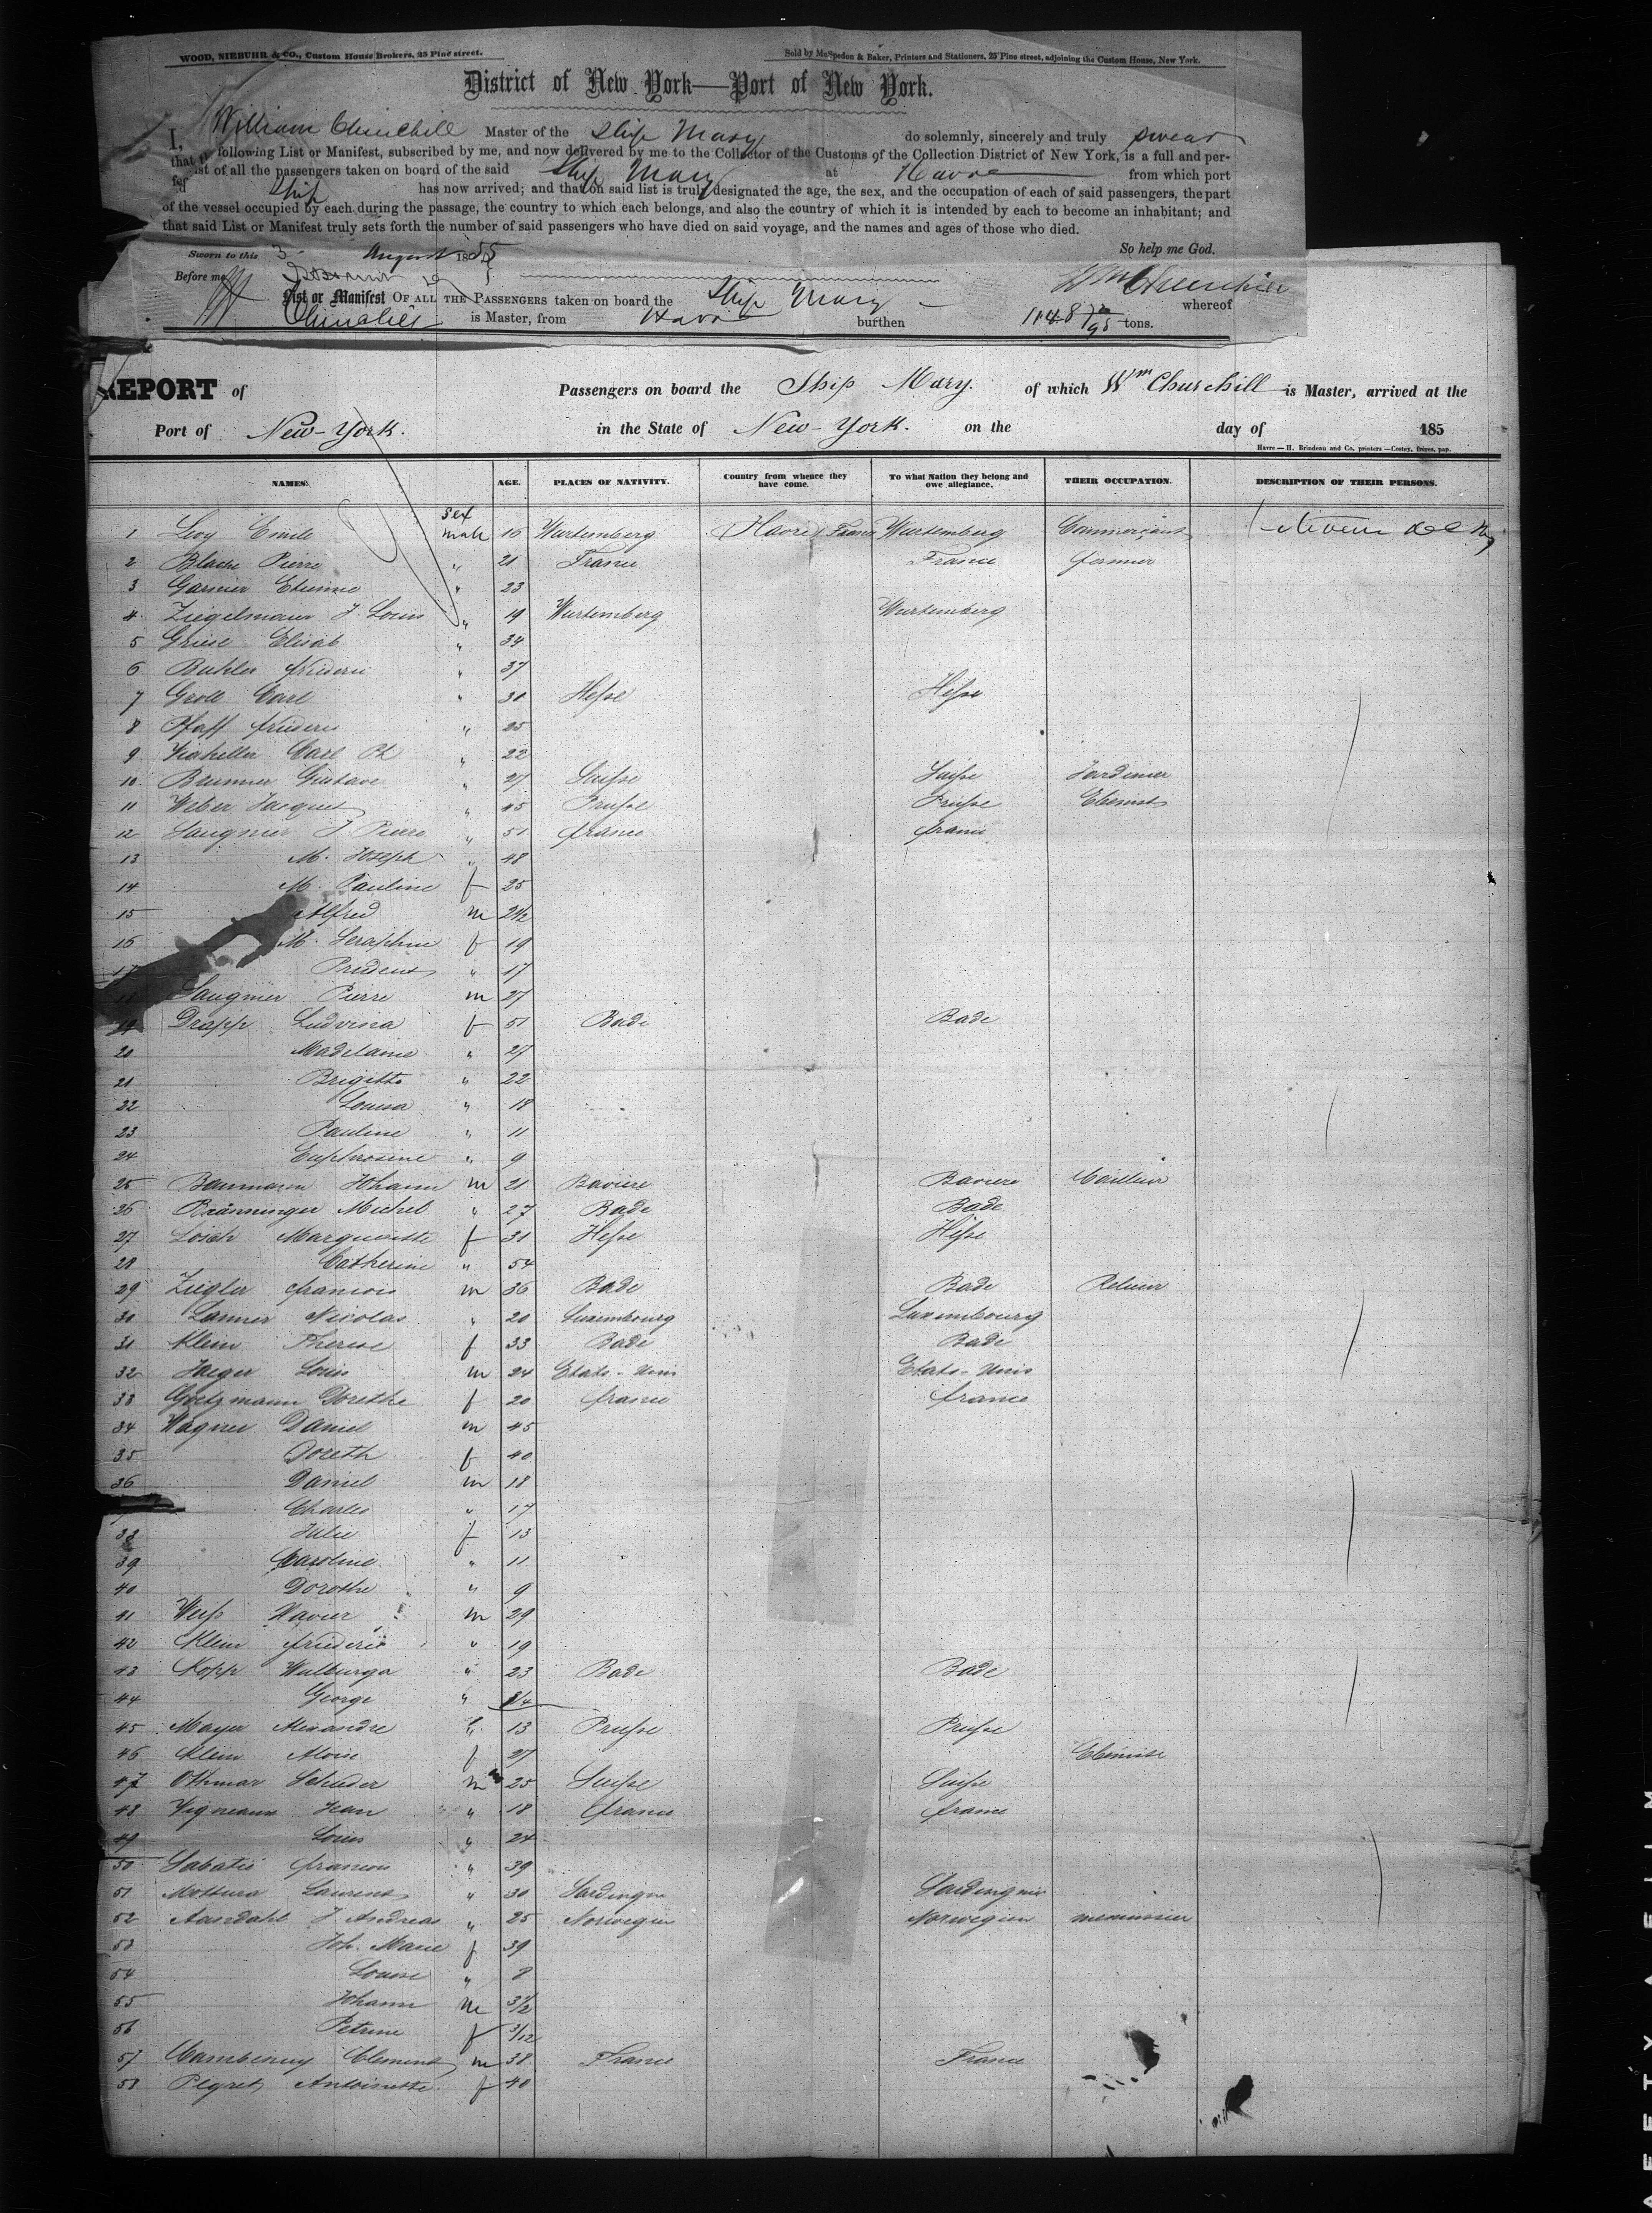 WOOD, NIEBUHR & CO., Custom House Brokers, 25 Pine street. Sold by McSpedon & Baker, Printers and Stationers, 25 Pine street, adjoining the Custom House, New York.
District of New York—Port of New York.
I, William Churchill Master of the Ship Mary do solemnly, sincerely and truly swear
that following List or Manifest, subscribed by me, and now delivered by me to the Collector of the Customs of the Collection District of New York, is a full and per-
ist of all the passengers taken on board of the said Ship Mary at Havre from which port
Ship has now arrived; and that on said list is truly designated the age, the sex, and the occupation of each of said passengers, the part
of the vessel occupied by each during the passage, the country to which each belongs, and also the country of which it is intended by each to become an inhabitant; and
that said List or Manifest truly sets forth the number of said passengers who have died on said voyage, and the names and ages of those who died.
Sworn to this 3 August 1855 So help me God.
Before me Wm Churchill
List or Manifest OF ALL THE PASSENGERS taken on board the Ship Mary whereof
Churchill is Master, from Havre burthen 1148 /95 tons.
REPORT of Passengers on board the Ship Mary. of which Wm Churchill is Master, arrived at the
Port of New-York. in the State of New-York. on the day of 185
Havre — H. Brindeau and Co, printers
NAMES. sex AGE. PLACES OF NATIVITY. Country from whence they have come. To what Nation they belong and owe allegiance. THEIR OCCUPATION. DESCRIPTION OF THEIR PERSONS.
1 Emile male 16 Wurtemberg Havre France Wurtemberg Commerçant
2 Blache Pierre " 21 France France fermier
3 Garnier Etienne " 23
4 J. Louis " 19 Wurtemberg Wurtemberg
5 Elisab " 34
6 Buhler friederic " 37
7 Groll Carl " 30 Hesse Hesse
8 Pfaff friederic " 25
9 Carl Ph " 22
10 Brunner Gustave " 27 Suisse Suisse Jardinier
11 Weber Jacques " 45 Prusse Prusse Ebeniste
12 Saugnier J. Pierre " 51 france france
13 M. Joseph " 48
14 M. Pauline f 25
15 Alfred m 2 1/2
16 M. Seraphine f 19
17 Prudent " 17
18 Saugnier Pierre m 27
19 Drapp Ludvina f 51 Bade Bade
20 Madelaine " 27
21 Brigitte " 22
22 Louisa " 18
23 Pauline " 11
24 Euphrosine " 9
25 Baumann Johann m 21 Baviere Baviere Tailleur
26 Bränninger Michel " 27 Bade Bade
27 Losch Margueritte f 31 Hesse Hesse
28 Catherine " 54
29 Ziegler francois m 36 Bade Bade Relieur
30 Lanner Nicolas " 20 Luxembourg Luxembourg
31 Klein Therese f 33 Bade Bade
32 Jaeger Louis m 24 Etats-Unis Etats-Unis
33 Goetzmann Dorethe f 20 france france
34 Wagner Daniel m 45
35 Doreth f 40
36 Daniel m 18
Charles " 17
38 Julie f 13
39 Caroline " 11
40 Dorothe " 9
41 Weiss Xavier m 29
42 Klein friederic " 19
43 Kopp Walburga " 23 Bade Bade
44 George "
45 Mayer Alexandre " 13 Prusse Prusse
46 Klein Aloise f 27 Ebeniste
47 Othmar Schuder m 25 Suisse Suisse
48 Vigneaux Jean " 18 france france
49 Louis " 24
50 Sabatié francois " 39
51 Mottura Laurent " 30 Sardingne Sardingnie
52 Aandahl J. Andreas " 25 Norwegien Norwegien menuisier
53 Joh. Marie f 39
54 Louise " 8
55 Johann m 3 1/2
56 Petrine f 3/12
57 Clement m 38 France France
58 Pegret Antoinette f 40